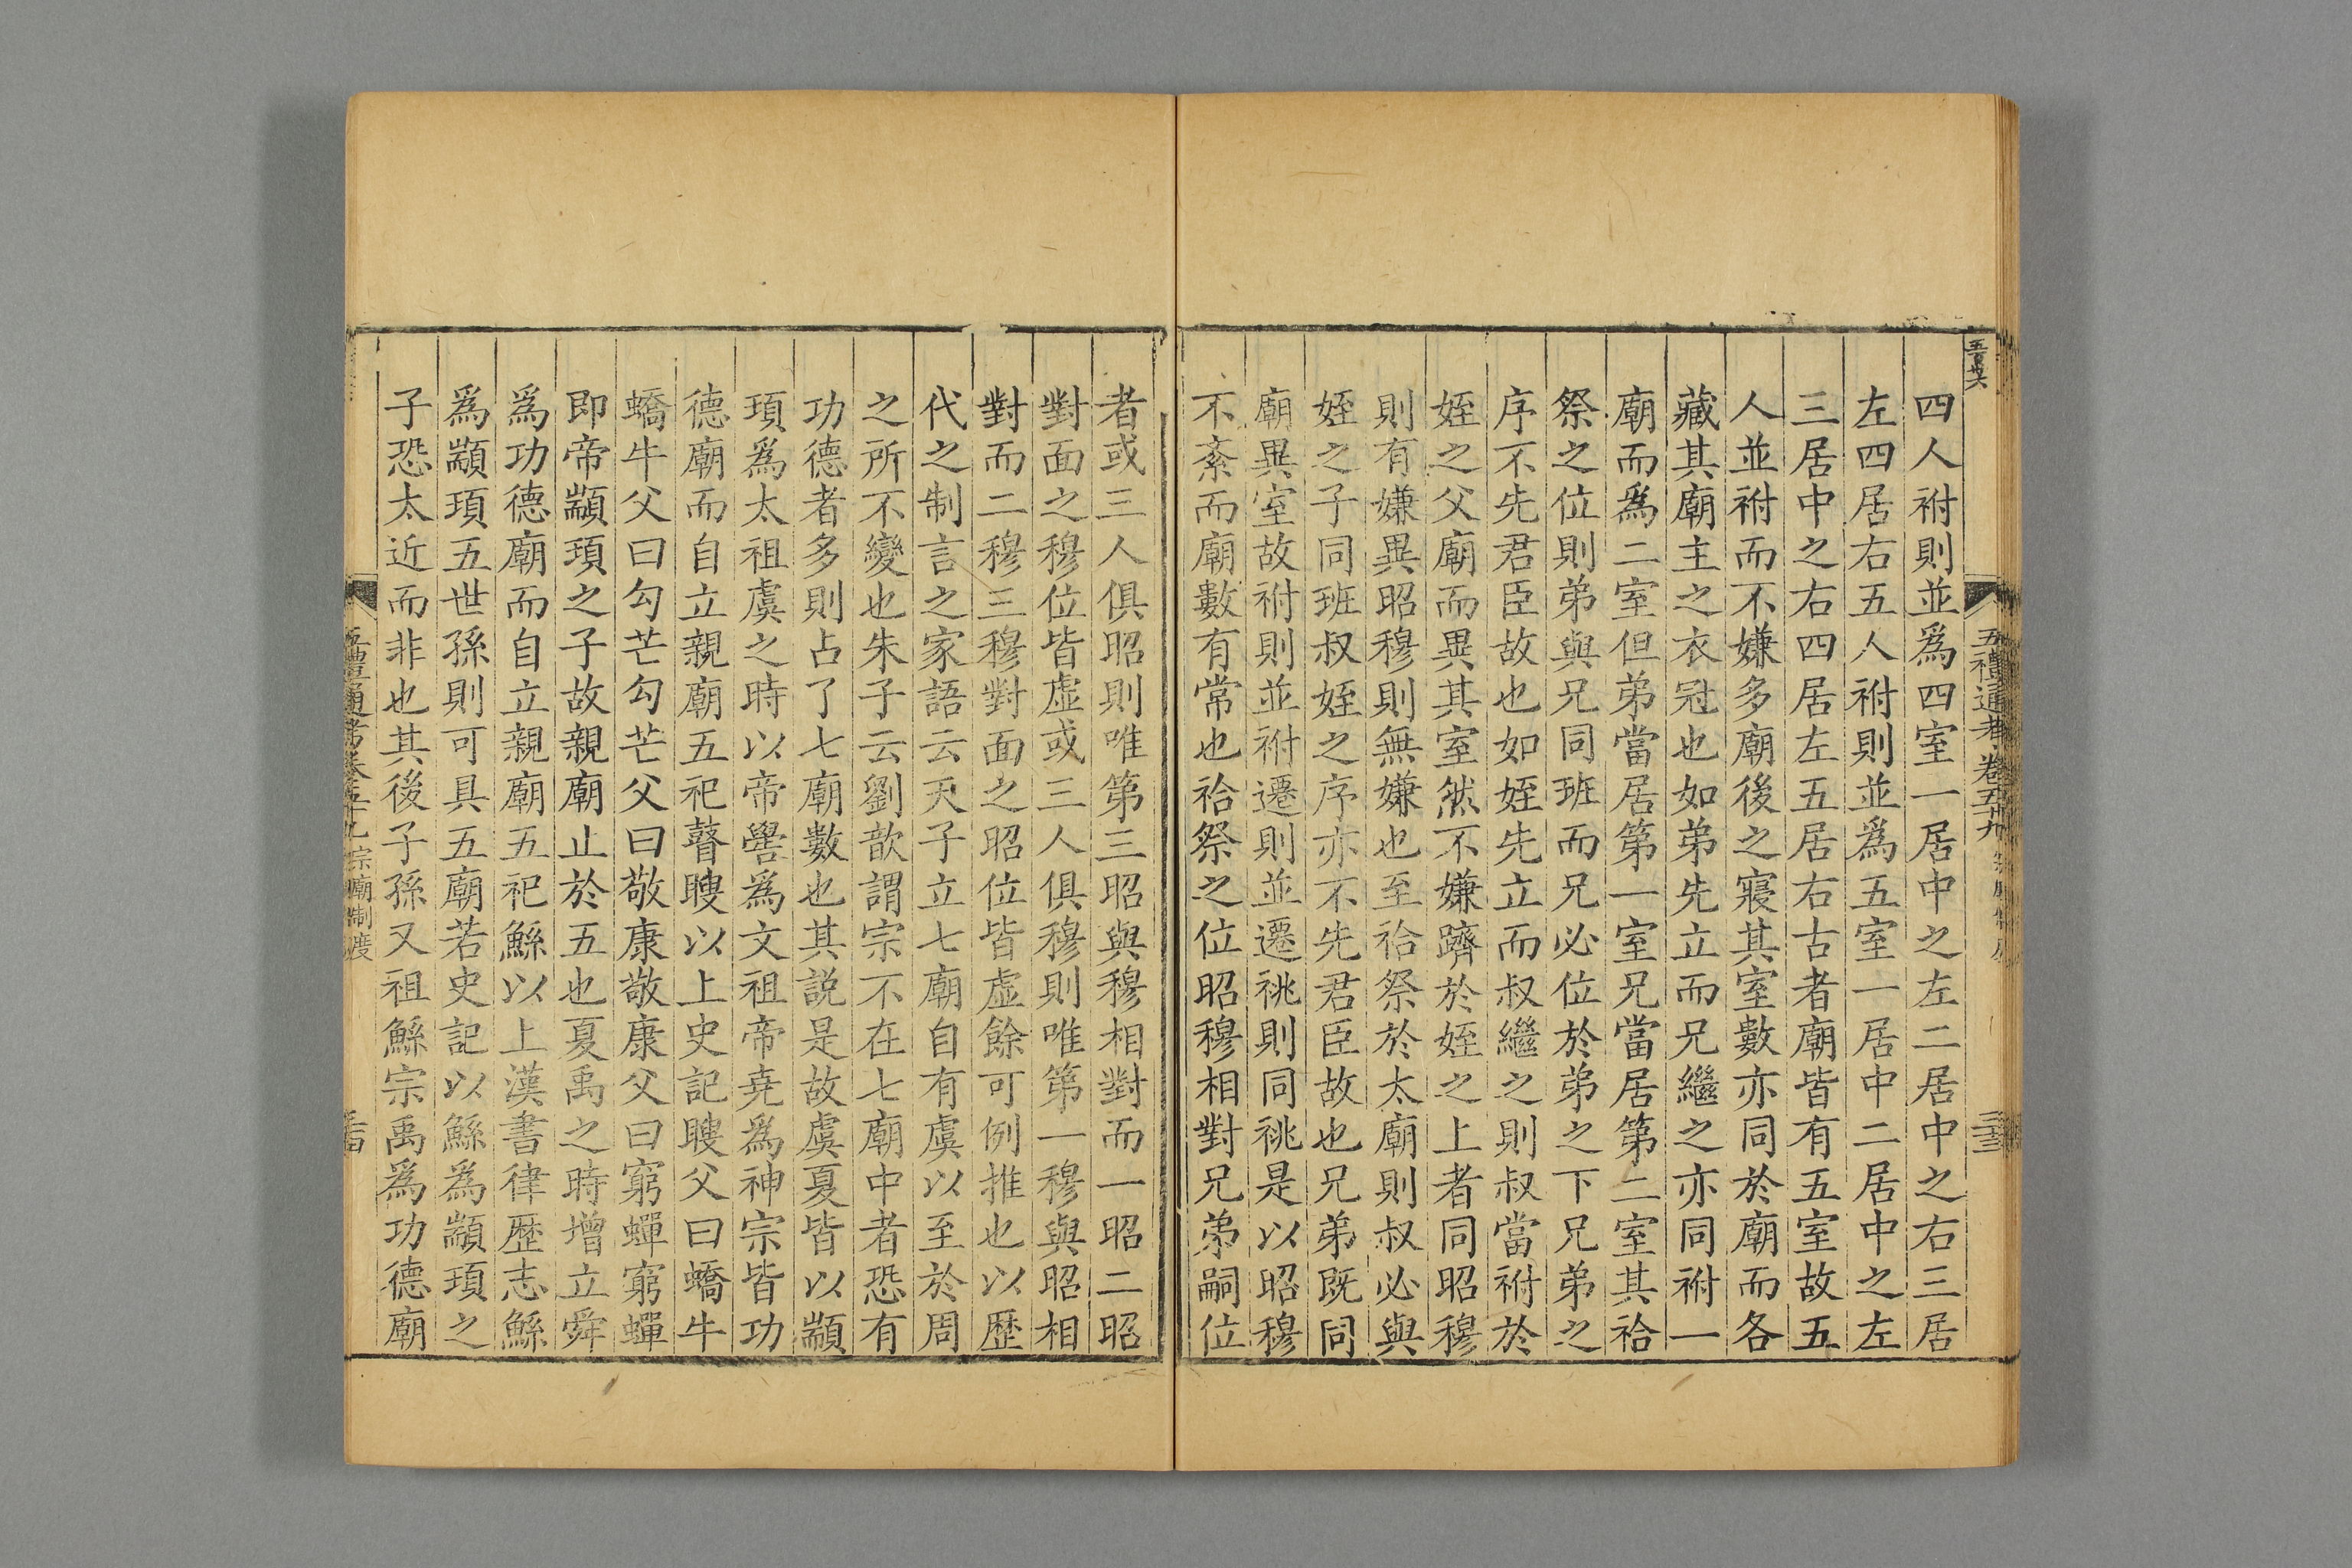 五禮通考卷五十九
四人祔則並爲四室一居中之左二居中之右三居
左四居右五人祔則並爲五室一居中二居中之左
三居中之右四居左五居右古者廟皆有五室故五
人並祔而不嫌多廟後之寢其室數亦同於廟而各
藏其廟主之衣冠也如弟先立而兄繼之亦同祔一
廟而爲二室但弟當居第一室兄當居第二室其祫
祭之位則弟與兄同班而兄必位於弟之下兄弟之
序不先君臣故也如姪先立而叔繼之則叔當祔於
姪之父廟而異其室然不嫌躋於姪之上者同昭穆
則有嫌異昭穆則無嫌也至祫祭於太廟則叔必與
姪之子同班叔姪之序亦不先君臣故也兄弟既同
廟異室故祔則並祔遷則並遷祧則同祧是以昭穆
不紊而廟數有常也祫祭之位昭穆相對兄弟嗣位
者或三人俱昭則唯第三昭與穆相對而一昭二昭
對面之穆位皆虛或三人俱穆則唯第一穆與昭相
對而二穆三穆對面之昭位皆虛餘可例推也以歷
代之制言之家語云天子立七廟自有虞以至於周
之所不變也朱子云劉歆謂宗不在七廟中者恐有
功德者多則占了七廟數也其説是故虞夏皆以顓
頊爲太祖虞之時以帝嚳爲文祖帝堯爲神宗皆功
德廟而自立親廟五祀瞽瞍以上史記瞍父曰蟜牛
蟜牛父曰勾芒勾芒父曰敬康敬康父曰窮蟬窮蟬
即帝顓頊之子故親廟止於五也夏禹之時增立舜
爲功德廟而自立親廟五祀鯀以上漢書律歷志鯀
爲顓頊五世孫則可具五廟若史記以鯀爲顓頊之
子恐太近而非也其後子孫又祖鯀宗禹爲功德廟
五禮通考卷五十九 宗廟制度